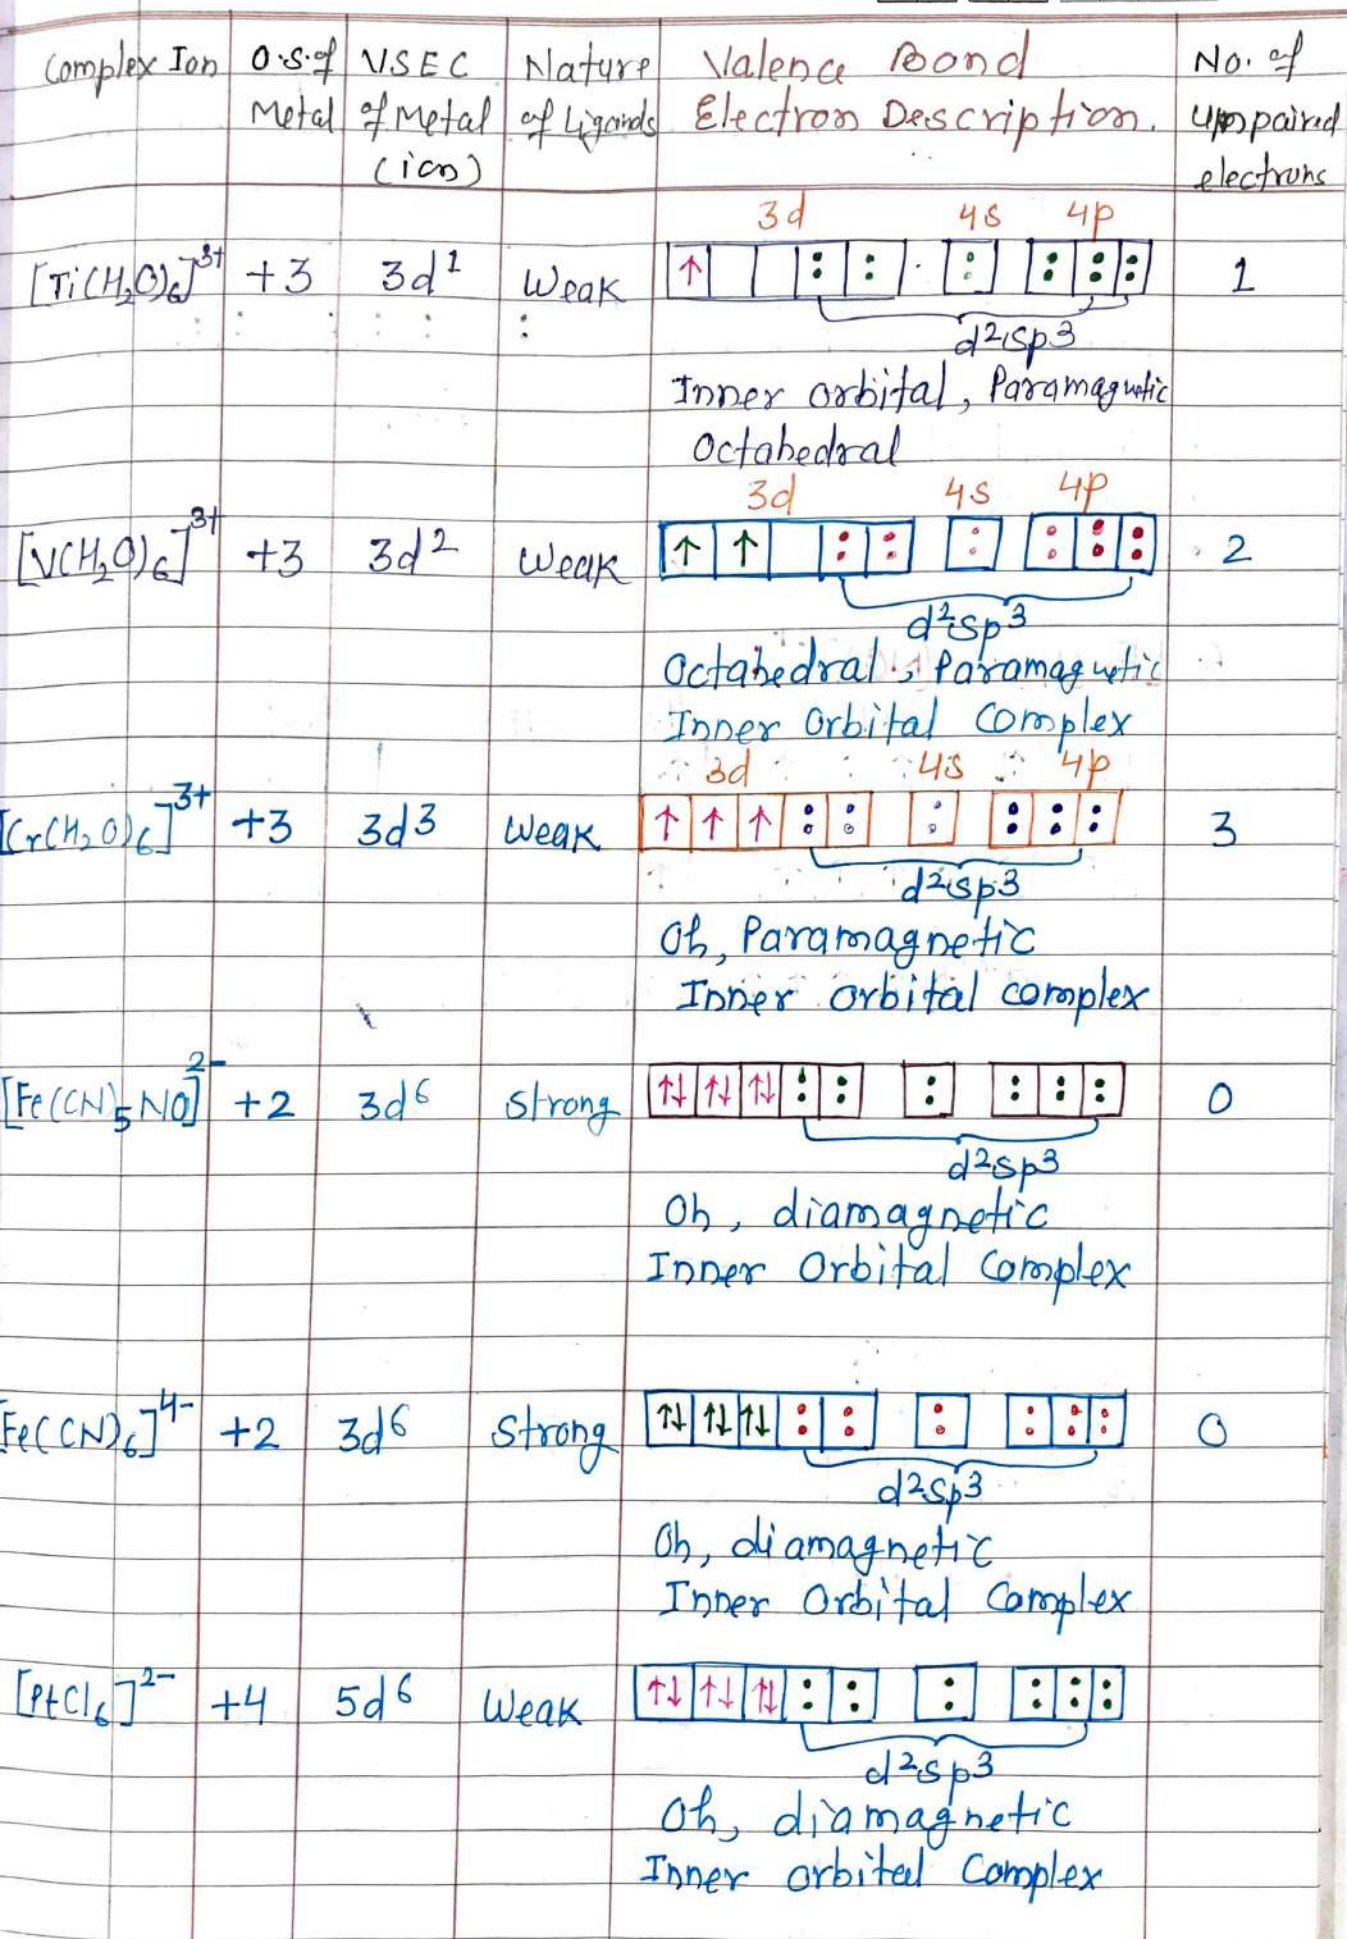 Complex Ion O.S. of Metal V.S.E.C of Metal (ion) Nature of Ligands Valence Bond Electron Description. No. of unpaired electrons
3d 4s 4p
[Ti(H2O)6]3+ +3 3d1 Weak ↑ 1
d2sp3
Inner orbital, Paramagnetic
Octahedral
3d 4s 4p
[V(H2O)6]3+ +3 3d2 Weak ↑ ↑ 2
d2sp3
Octahedral, Paramagnetic
Inner Orbital Complex
3d 4s 4p
[Cr(H2O)6]3+ +3 3d3 Weak ↑ ↑ ↑ 3
d2sp3
Oh, Paramagnetic
Inner orbital complex
[Fe(CN)5NO]2- +2 3d6 Strong ↑↓ ↑↓ ↑↓ 0
d2sp3
Oh, diamagnetic
Inner Orbital Complex
[Fe(CN)6]4- +2 3d6 Strong ↑↓ ↑↓ ↑↓ 0
d2sp3
Oh, diamagnetic
Inner Orbital Complex
[PtCl6]2- +4 5d6 Weak ↑↓ ↑↓ ↑↓
d2sp3
Oh, diamagnetic
Inner orbital Complex